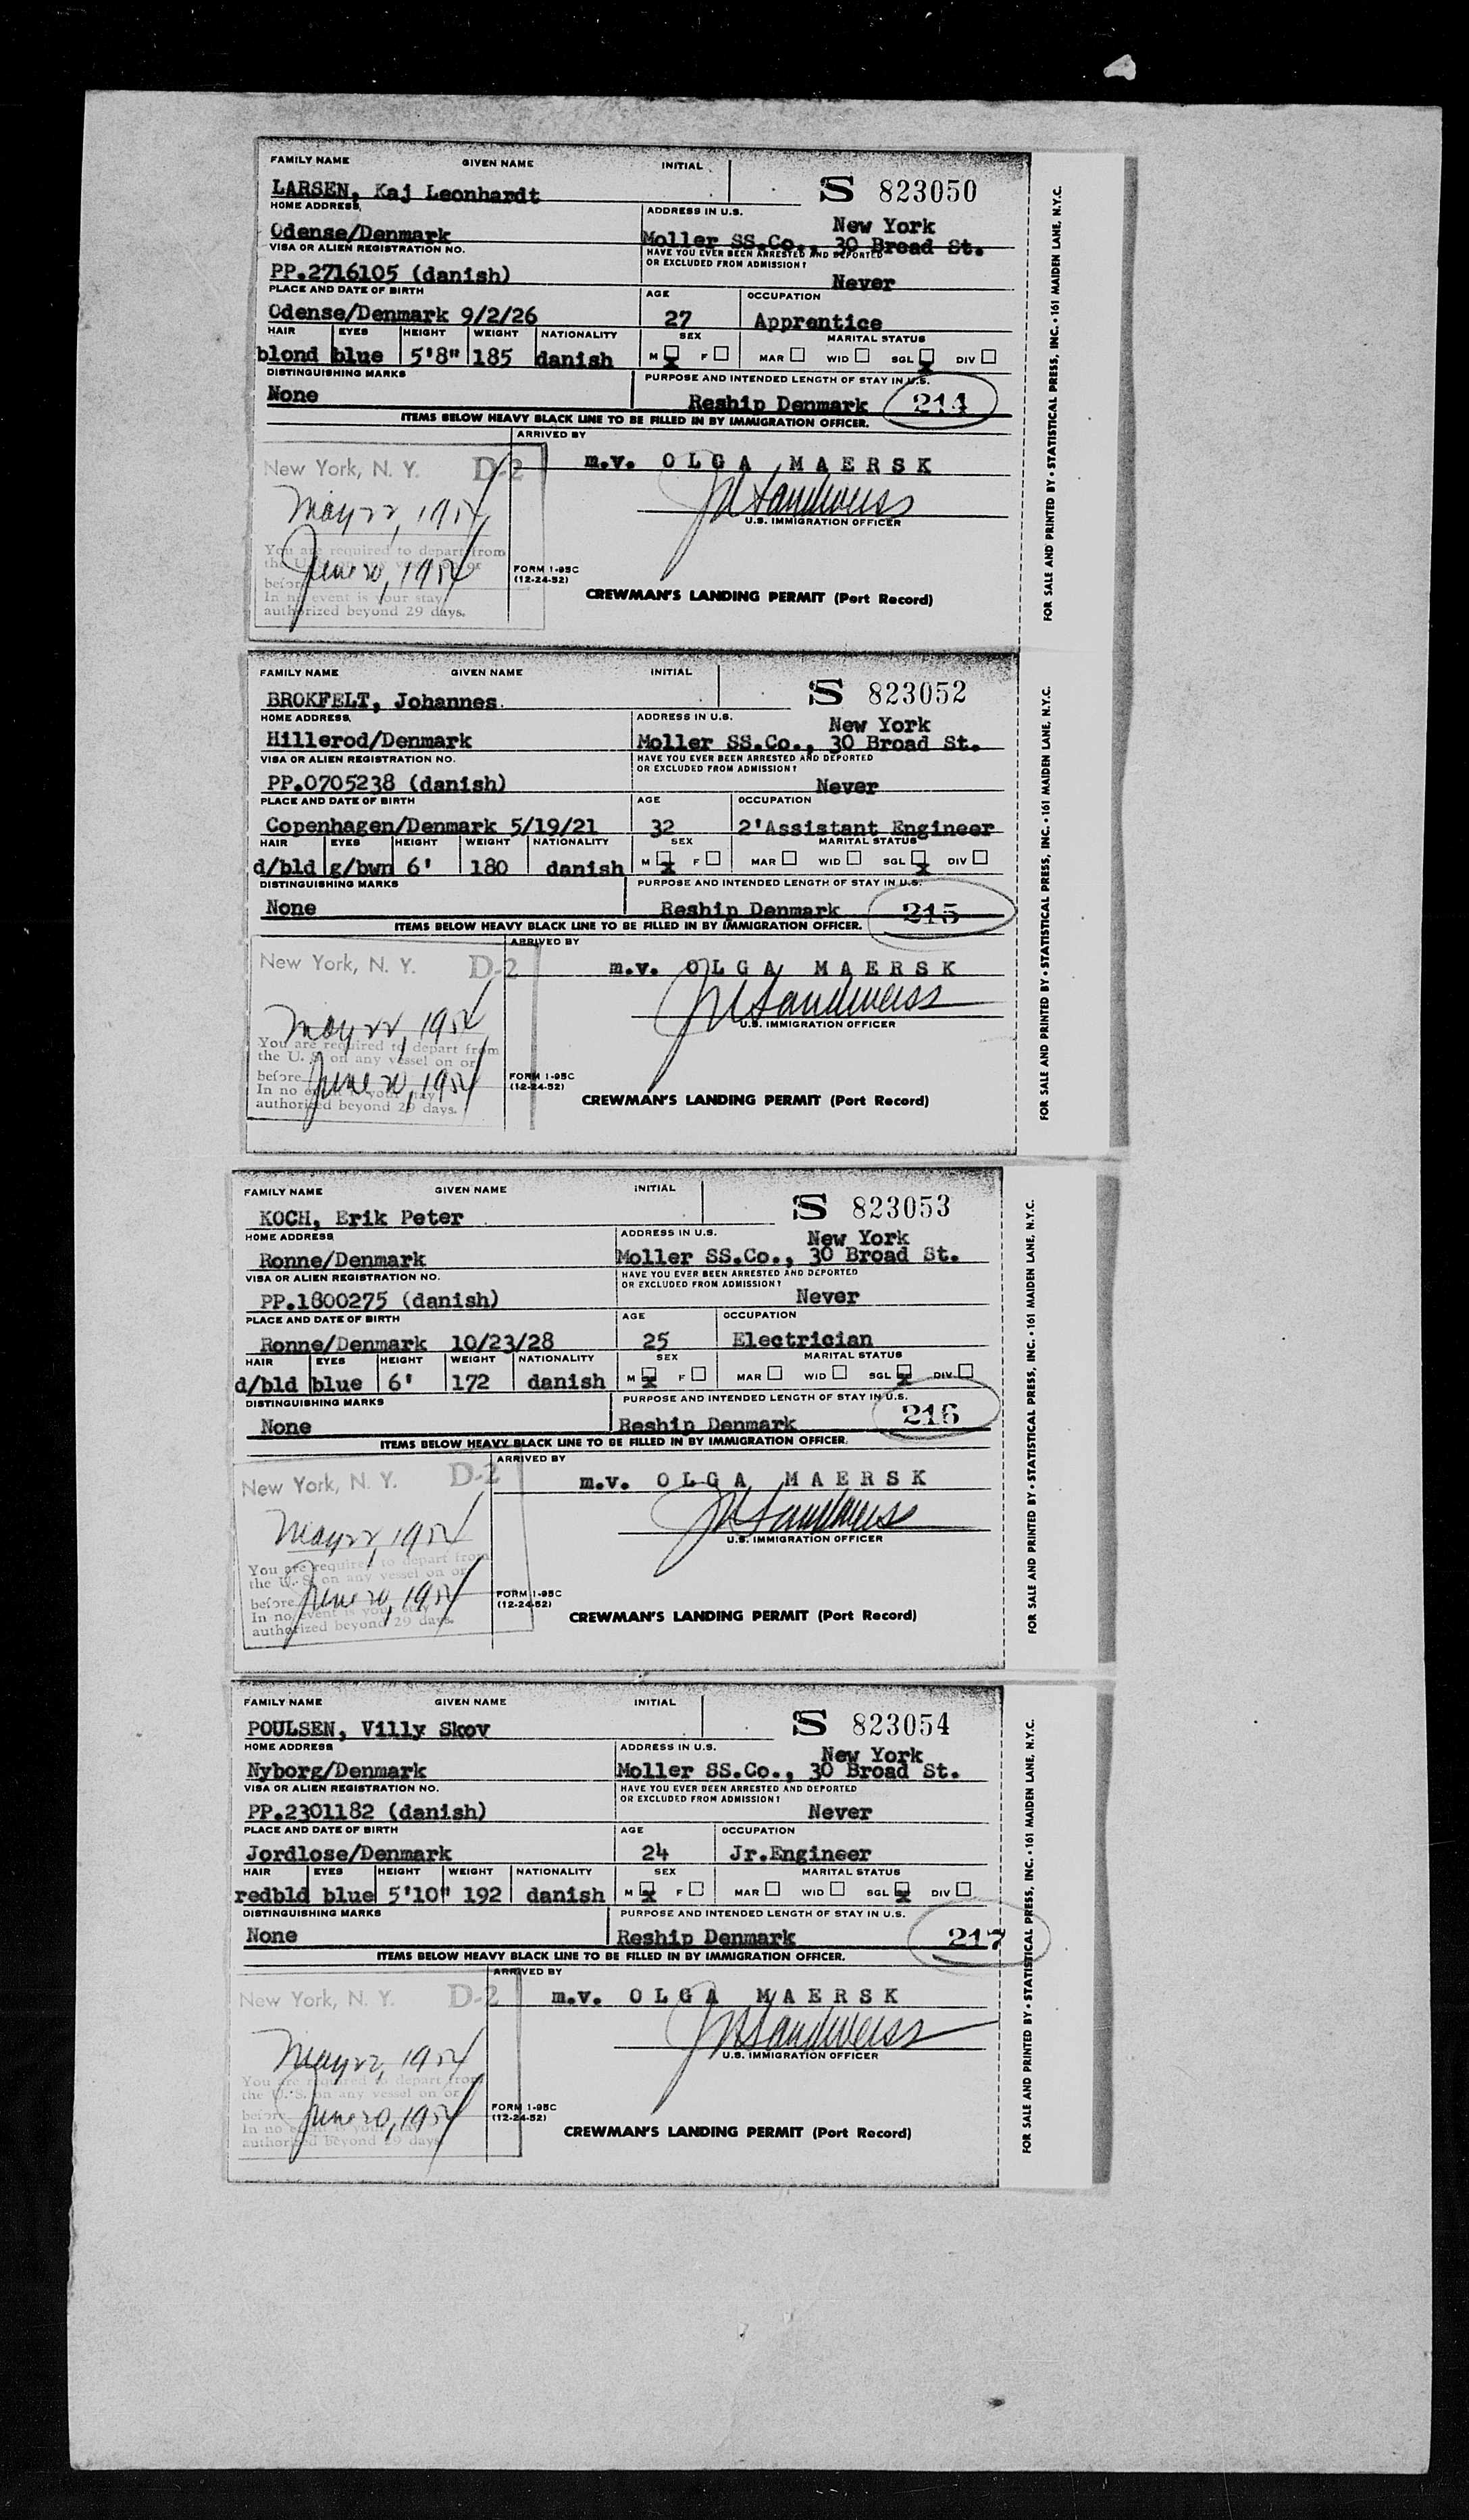 FAMILY NAME GIVEN NAME INITIAL
S 823050
LARSEN, Kaj Leonhardt
HOME ADDRESS, ADDRESS IN U.S.
New York
Odense/Denmark Moller SS.Co., 30 Broad St.
VISA OR ALIEN REGISTRATION NO. HAVE YOU EVER BEEN ARRESTED AND DEPORTED
OR EXCLUDED FROM ADMISSION?
PP.2716105 (danish) Never
PLACE AND DATE OF BIRTH AGE OCCUPATION
Odense/Denmark 9/2/26 27 Apprentice
HAIR EYES HEIGHT WEIGHT NATIONALITY SEX MARITAL STATUS
blond blue 5'8" 185 danish M x F MAR WID SGL x DIV
DISTINGUISHING MARKS PURPOSE AND INTENDED LENGTH OF STAY IN U.S.
None Reship Denmark 214
ITEMS BELOW HEAVY BLACK LINE TO BE FILLED IN BY IMMIGRATION OFFICER.
ARRIVED BY
New York, N. Y. D-2 m.v. OLGA MAERSK
May 22, 1954
U.S. IMMIGRATION OFFICER
You are required to depart from
the U.S. on any vessel on or
before June 20, 1954
In no event is your stay
authorized beyond 29 days.
FORM I-95C
(12-24-52)
CREWMAN'S LANDING PERMIT (Port Record)
FOR SALE AND PRINTED BY • STATISTICAL PRESS, INC. • 161 MAIDEN LANE, N.Y.C.
FAMILY NAME GIVEN NAME INITIAL
S 823052
BROKFELT, Johannes.
HOME ADDRESS, ADDRESS IN U.S.
New York
Hillerod/Denmark Moller SS.Co., 30 Broad St.
VISA OR ALIEN REGISTRATION NO. HAVE YOU EVER BEEN ARRESTED AND DEPORTED
OR EXCLUDED FROM ADMISSION?
PP.0705238 (danish) Never
PLACE AND DATE OF BIRTH AGE OCCUPATION
Copenhagen/Denmark 5/19/21 32 2'Assistant Engineer
HAIR EYES HEIGHT WEIGHT NATIONALITY SEX MARITAL STATUS
d/bld g/bwn 6' 180 danish M x F MAR WID SGL x DIV
DISTINGUISHING MARKS PURPOSE AND INTENDED LENGTH OF STAY IN U.S.
None Reship Denmark 215
ITEMS BELOW HEAVY BLACK LINE TO BE FILLED IN BY IMMIGRATION OFFICER.
ARRIVED BY
New York, N. Y. D-2 m.v. OLGA MAERSK
May 22, 1954
U.S. IMMIGRATION OFFICER
You are required to depart from
the U. S. on any vessel on or
before June 20, 1954
In no event is your stay
authorized beyond 29 days.
FORM I-95C
(12-24-52)
CREWMAN'S LANDING PERMIT (Port Record)
FOR SALE AND PRINTED BY • STATISTICAL PRESS, INC. • 161 MAIDEN LANE, N.Y.C.
FAMILY NAME GIVEN NAME INITIAL
S 823053
KOCH, Erik Peter
HOME ADDRESS ADDRESS IN U.S.
New York
Ronne/Denmark Moller SS.Co., 30 Broad St.
VISA OR ALIEN REGISTRATION NO. HAVE YOU EVER BEEN ARRESTED AND DEPORTED
OR EXCLUDED FROM ADMISSION?
PP.1800275 (danish) Never
PLACE AND DATE OF BIRTH AGE OCCUPATION
Ronne/Denmark 10/23/28 25 Electrician
HAIR EYES HEIGHT WEIGHT NATIONALITY SEX MARITAL STATUS
d/bld blue 6' 172 danish M x F MAR WID SGL x DIV
DISTINGUISHING MARKS PURPOSE AND INTENDED LENGTH OF STAY IN U.S.
None Reship Denmark 216
ITEMS BELOW HEAVY BLACK LINE TO BE FILLED IN BY IMMIGRATION OFFICER.
ARRIVED BY
New York, N. Y. D-2 m.v. OLGA MAERSK
May 22, 1954
U.S. IMMIGRATION OFFICER
You are required to depart from
the U. S. on any vessel on or
before June 20, 1954
In no event is your stay
authorized beyond 29 days.
FORM I-95C
(12-24-52)
CREWMAN'S LANDING PERMIT (Port Record)
FOR SALE AND PRINTED BY • STATISTICAL PRESS, INC. • 161 MAIDEN LANE, N.Y.C.
FAMILY NAME GIVEN NAME INITIAL
S 823054
POULSEN, Villy Skov
HOME ADDRESS ADDRESS IN U.S.
New York
Nyborg/Denmark Moller SS.Co., 30 Broad St.
VISA OR ALIEN REGISTRATION NO. HAVE YOU EVER BEEN ARRESTED AND DEPORTED
OR EXCLUDED FROM ADMISSION?
PP.2301182 (danish) Never
PLACE AND DATE OF BIRTH AGE OCCUPATION
Jordlose/Denmark 24 Jr.Engineer
HAIR EYES HEIGHT WEIGHT NATIONALITY SEX MARITAL STATUS
redbld blue 5'10" 192 danish M x F MAR WID SGL x DIV
DISTINGUISHING MARKS PURPOSE AND INTENDED LENGTH OF STAY IN U.S.
None Reship Denmark 217
ITEMS BELOW HEAVY BLACK LINE TO BE FILLED IN BY IMMIGRATION OFFICER.
ARRIVED BY
New York, N. Y. D-2 m.v. OLGA MAERSK
May 22, 1954
U.S. IMMIGRATION OFFICER
You are required to depart from
the U. S. on any vessel on or
before June 20, 1954
In no event is your stay
authorized beyond 29 days
FORM I-95C
(12-24-52)
CREWMAN'S LANDING PERMIT (Port Record)
FOR SALE AND PRINTED BY • STATISTICAL PRESS, INC. • 161 MAIDEN LANE, N.Y.C.